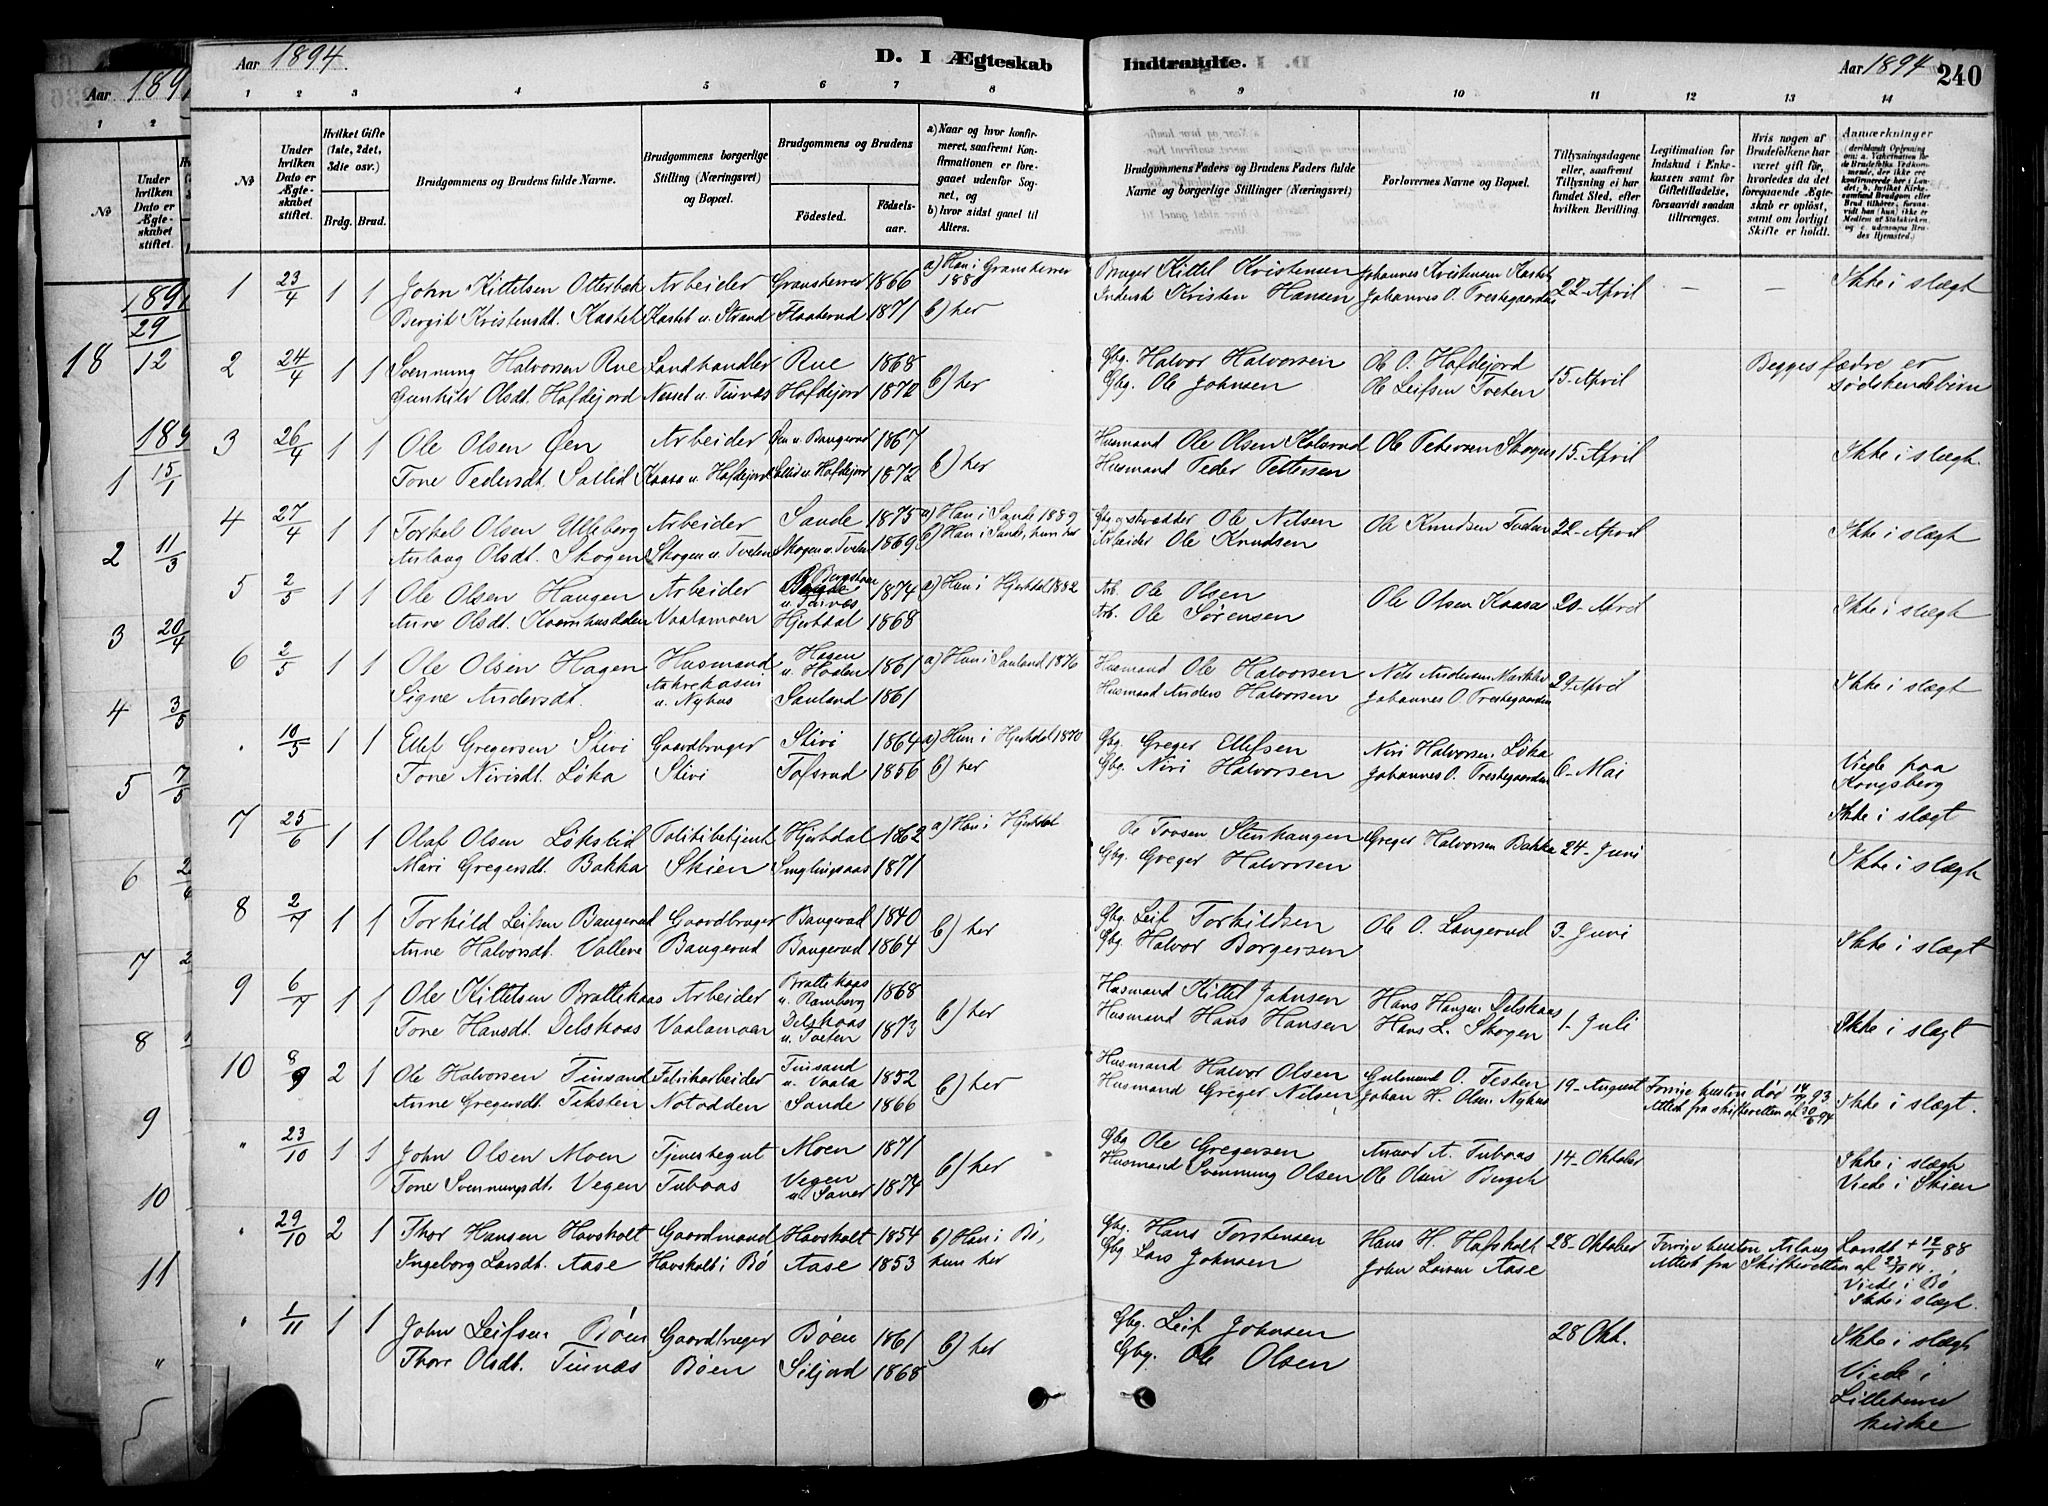 Aar 1894. D. I Ægteskab Indtraadte. Aar 1894 240
1 2 3 4 5 6 7 8 9 10 11 12 13 14
No
Under hvilken Dato er Ægteskabet stiftet.
Hvilket Gifte (1ste, 2det, 3die osv.)
Brdg. Brud.
Brudgommens og Brudens fulde Navne.
Brudgommens borgerlige Stilling (Næringsvei) og Bopæl.
Brudgommens og Brudens
Fødested. Fødselsaar.
a) Naar og hvor konfirmeret, saafremt Konfirmationen er foregaaet udenfor Sognet, og
b) hvor sidst gaaet til Alters.
Brudgommens Faders og Brudens Faders fulde Navne og borgerlige Stillinger (Næringsvei)
Forlovernes Navne og Bopæl.
Tillysningsdagene eller, saafremt Tillysning ei har fundet Sted, efter hvilken Bevilling.
Legitimation for Indskud i Enkekassen samt for Giftetilladelse, forsaavidt saadan tiltrænges.
Hvis nogen af Brudefolkene har været gift før, hvorledes da det foregaaende Ægteskab er opløst, samt om lovligt Skifte er holdt.
Anmærkninger
1 23/4 1 1 John Kittelsen Otterbek Arbeider Gransherrer 1866 a) Han i Gransherrer 1880 Bruger Kittel Kristensen Johannes Kristensen Kastet 22 April — — Ikke i slægt
Bergit Kristensdt. Kastet Kastet u. Strand Flaaterud 1871 b) her Inderst Kristen Hansen Johannes O. Prestegaarden
2 24/4 1 1 Svennung Halvorsen Rue Landhandler Rue 1868 b) her Gbg. Halvor Halvorsen Ole O. Hofdejord 15 April Begges fædre er
Gunhild Olsdt. Hofdejord Nesset u. Tinnæs Hofdejord 1872 Gbg. Ole Johnsen Ole Leifsen Tveten sødskendebørn
3 26/4 1 1 Ole Olsen Øen Arbeider Øen u. Baugerud 1867 b) her Husmand Ole Olsen Kolsrud Ole Petersen Skogen 15 April Ikke i slægt.
Tone Pedersdt. Sallid Kaasa u. Hofdejord Sallid u. Hofdejord 1872 Husmand Peder Pettersen
4 27/4 1 1 Torkel Olsen Elleberg Arbeider Sande 1875 a) Han i Sande 1889 Gbg. og skrædder Ole Nilsen Ole Knudsen Tveten 22 April Ikke i slægt
Aslaug Olsdt. Skogen Skogen u. Tveten Skogen u. Tveten 1869 b) Han i Sande, hun her Arbeider Ole Knudsen
5 2/5 1 1 Ole Olsen Haugen Arbeider u. Tinnæs 1874 a) Hun i Hjertdal 1882 Arb. Ole Olsen Ole Olsen Kaasa 20 April Ikke i slægt
Anne Olsdt. Vaalamoen Hjertdal 1868 Arb. Ole Sørensen
6 2/5 1 1 Ole Olsen Hagen Husmand Hagen u. Haalen 1861 a) Hun i Sauland 1876 Husmand Ole Halvorsen Nils Andersen 29 April Ikke i slægt
Signe Andersdt. u. Nyhus Sauland 1861 Husmand Anders Halvorsen Johannes O. Prestegaarden
" 10/5 1 1 Ellef Gregersen Stivi Gaardbruger Stivi 1864 a) Hun i Hjertdal 1870 Gbg. Greger Ellefsen Niri Halvorsen Løka 6 Mai Viede paa Kongsberg
Tone Nirisdt. Løka Stivi Tofsrud 1856 b) her Gbg. Niri Halvorsen Johannes O. Prestegaarden Ikke i slægt
7 25/6 1 1 Olaf Olsen Løkslid Politibetjent Hjertdal 1862 a) Han i Hjertdal Ole Tovsen Stenhaugen Greger Halvorsen Bakka 24 Juni Ikke i slægt
Mari Gregersdt. Bakka Skien 1871 Gbg. Greger Halvorsen
8 2/7 1 1 Torkild Leifsen Baugerud Gaardbruger Baugerud 1840 b) her Gbg. Leif Torkildsen Ole O. Langerud 3 Juni Ikke i slægt
Anne Halvorsdt. Valleve Baugerud Baugerud 1864 Gbg Halvor Borgersen
9 6/7 1 1 Ole Kittelsen Brattekaas Arbeider Brattekaas u. Ramberg 1868 b) her Husmand Kittel Johnsen Hans Hansen Delskaas 1 Juli Ikke i slægt
Tone Hansdt. Delskaas Vaalamoen Delskaas u. Tveten 1873 Husmand Hans Hansen Hans L. Skogen
10 8/9 2 1 Ole Halvorsen Tinsand Fabrikarbeider Tinsand u. Vaala 1852 b) her Husmand Halvor Olsen Gulmund O. Testen 19 August Forrige husten død 14/4 93. Ikke i slægt.
Anne Gregersdt. Teksten Notodden Sande 1866 Husmand Greger Nilsen Johan H. Olsn. Nyhus Attest fra skifteretten af 30/6 94
" 23/10 1 1 John Olsen Moen Tjenestegut Moen 1871 b) her Gbg Ole Gregersen Amund A. Tuboas 14 Oktober Ikke i slægt
Tone Svennungsdt. Vegen Tuboas Vegen u. Saner 1874 Husmand Svennung Olsen Ole Olsen Viede i Skien
" 29/10 2 1 Thor Hansen Havsholt Gaardmand Havsholt 1854 b) Han i Bø, Gbg. Hans Torstensen Hans H. Hafsholt 28 Oktober Forrige husten Aslaug Larsdt + 12/1 88
Ingeborg Larsdt. Aase Havsholt i Bø Aase 1853 hun her Gbg Lars Johnsen John Larsen Aase Attest fra Skifteretten af
Viede i Bø
Ikke i slægt.
" 1/11 1 1 John Leifsen Bøen Gaardbruger Bøen 1861 b) her Gbg. Leif Johnsen 28 Okt. Ikke i slægt
Thore Olsdt. Tinnæs Bøen Siljord 1868 Gbg. Ole Olsen Viede i
Lilleherred
kirke
Aar 1891
1 2
No
Under hvilken Dato er Ægteskabet stiftet.
1891
18 29/12
189
1 15/1
2 11/3
3 20/4
4 3/5
5 7/5
6
7
8
9
10
11
"